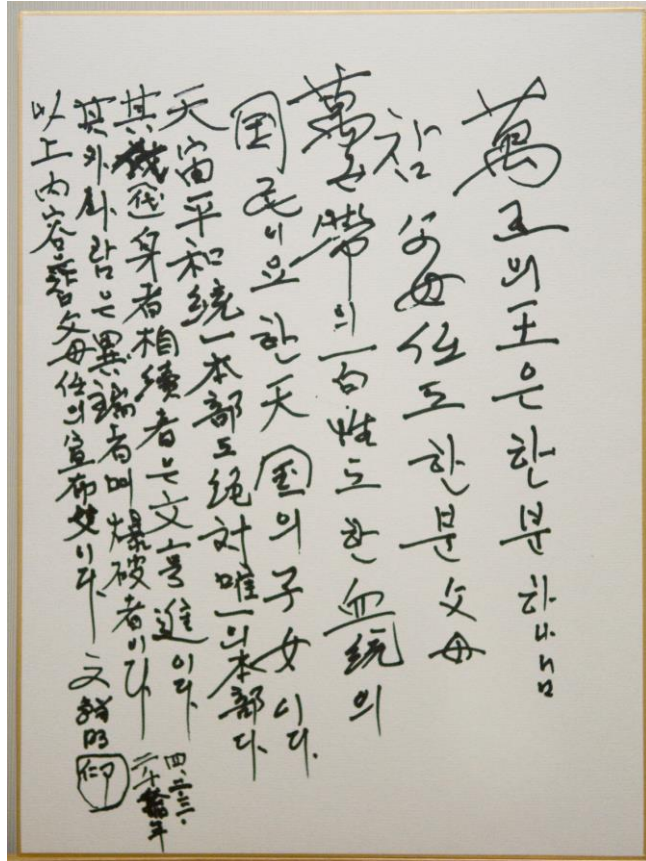 萬王의王은한분하나님
참父母任도한분父母
萬世帶의百姓도한血統의
国民이요한天国의子女이다.
天宙平和統一本部도絶対唯一의本部다.
其代身者相續者는文亨進이다.
其外사람은異端者며爆破者이다
以上内容은参父母任의宣布文이다
文鮮明
印
四.二三.
二千年